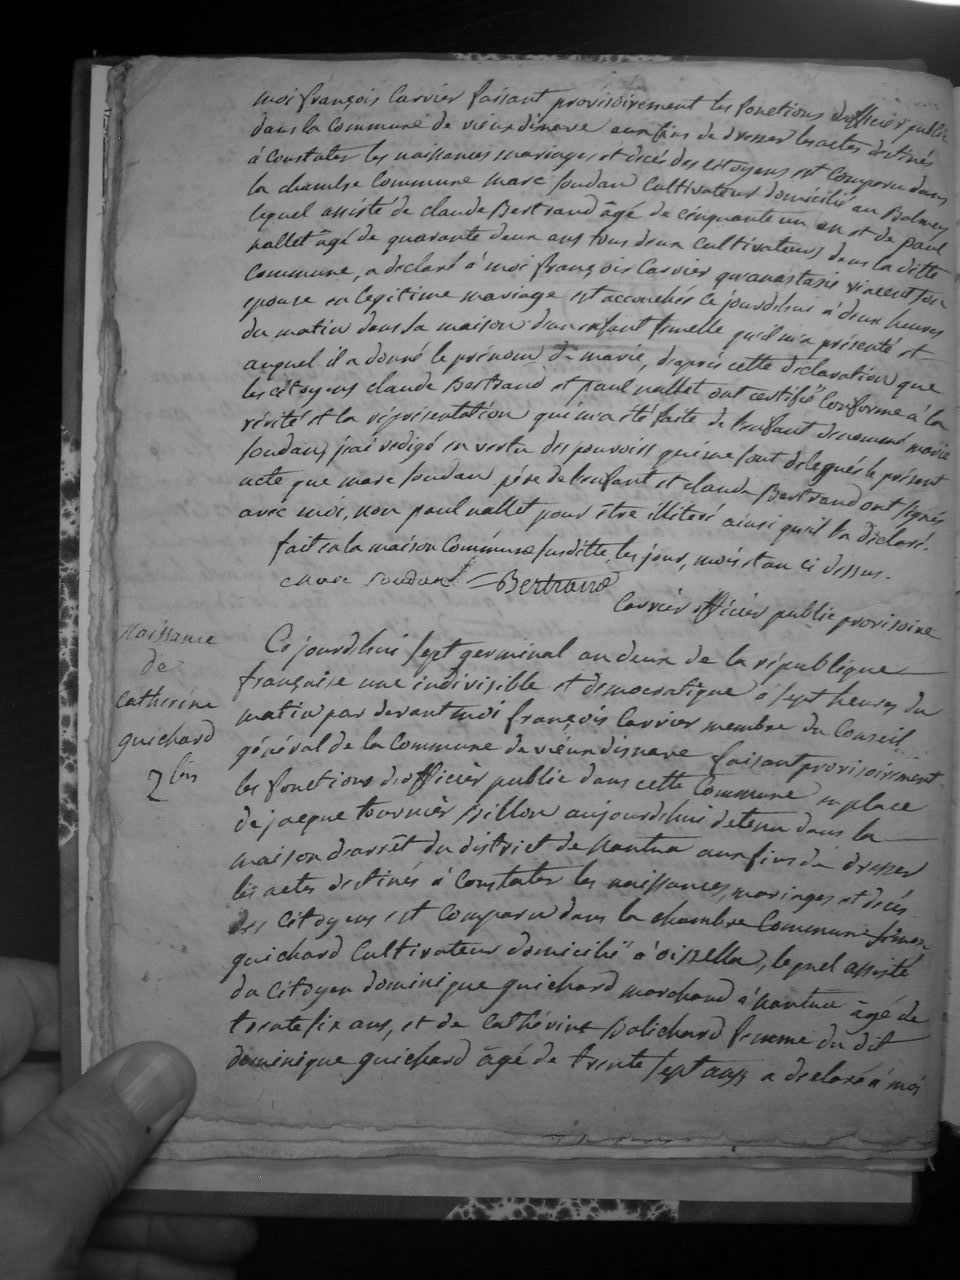 moi françois Carrier faisant provisoirement les fonctions d'officier public
dans la Commune de vieux disnave aux fins de dresser les actes destinés
à constater les naissances mariages et décés des citoyens est comparu dans
la chambre Commune marc soudan Cultivateur domicilié au Balmay
lequel assisté de claude Bertrand âgé de cinquante un an et de paul
nallet âgé de quarante deux ans tous deux Cultivateurs dans la ditte
Commune, a declaré à moi françois Carrier qu'anastasie vincent son
epouse en legitime mariage est accouchée ce jourdhui à deux heures
du matin dans sa maison d'un enfant femelle qu'il m'a présenté et
auquel il a donné le prénom de marie, d'après cette declaration que
les citoyens claude Bertrand et paul nallet ont certifié Conforme à la
vérité et la réprésentation qui m'a été faite de l'enfant denommé marie
soudan, j'ai redigé en vertu des pouvoirs qui me sont delegués le présent
acte que marc soudan père de l'enfant et claude Bertrand ont signés
avec moi, non paul nallet pour être illiteré ainsi qu'il l'a déclaré.
fait en la maison Commune susditte, les jour, mois et an ci dessus.
marc soudan Bertrand
Carrier officier public provisoire
Naissance
de
catherine
guichard
Ce jourdhui sept germinal an deux de la république
française une indivisible et democratique à sept heures du
matin par devant moi françois Carrier membre du Conseil
général de la Commune de vieux disnave faisant provisoirement
les fonctions d'officier public dans cette Commune en place
de jacque tournier billon aujourdhui detenu dans la
maison d'arrêt du district de nantua aux fins de dresser
les actes destinés à constater les naissances, mariages et décés
des citoyens est comparu dans la chambre Commune simon
guichard Cultivateur domicilié à oissella, lequel assisté
du citoyen dominique guichard marchand à nantua âgé de
trente six ans, et de Cathérine femme du dit
dominique guichard âgé de trente sept ans a declaré à moi